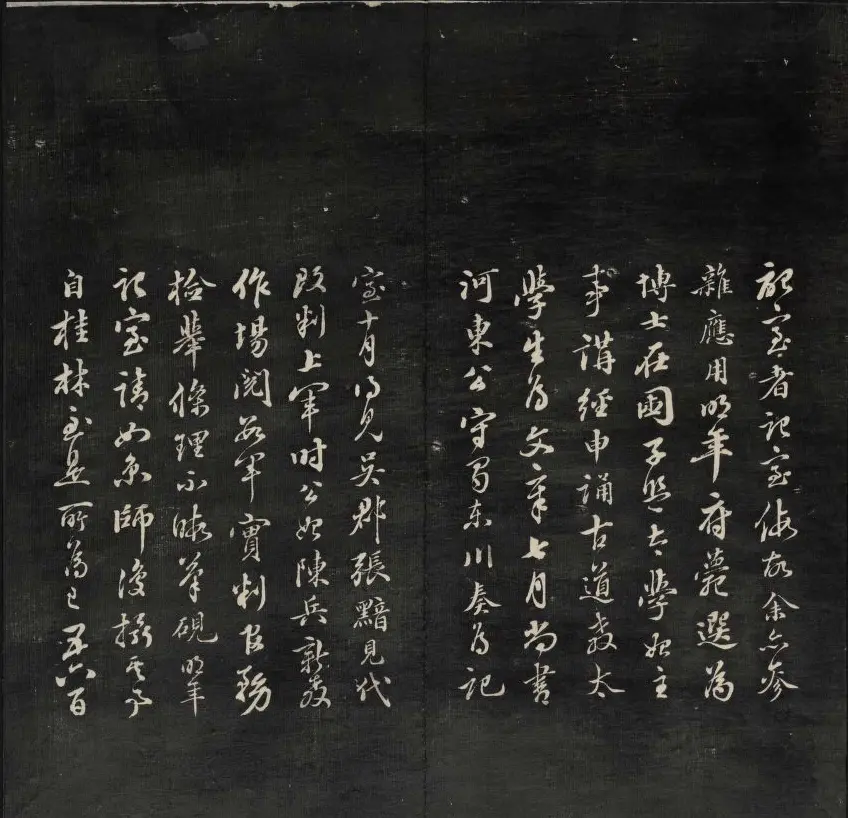 記室者記室假故余亦參
雜應用明年府薨選為
博士在國子監太學始主
事講經申誦古道教太
學生為文章七月尚書
河東公守蜀東川奏為記
室十月得見吳郡張黯見代
改判上軍時公始陳兵新教
作場閱數軍實判官務
檢舉條理不暇筆硯明年
記室請如京師復攝其事
自桂林至是所為已五六百